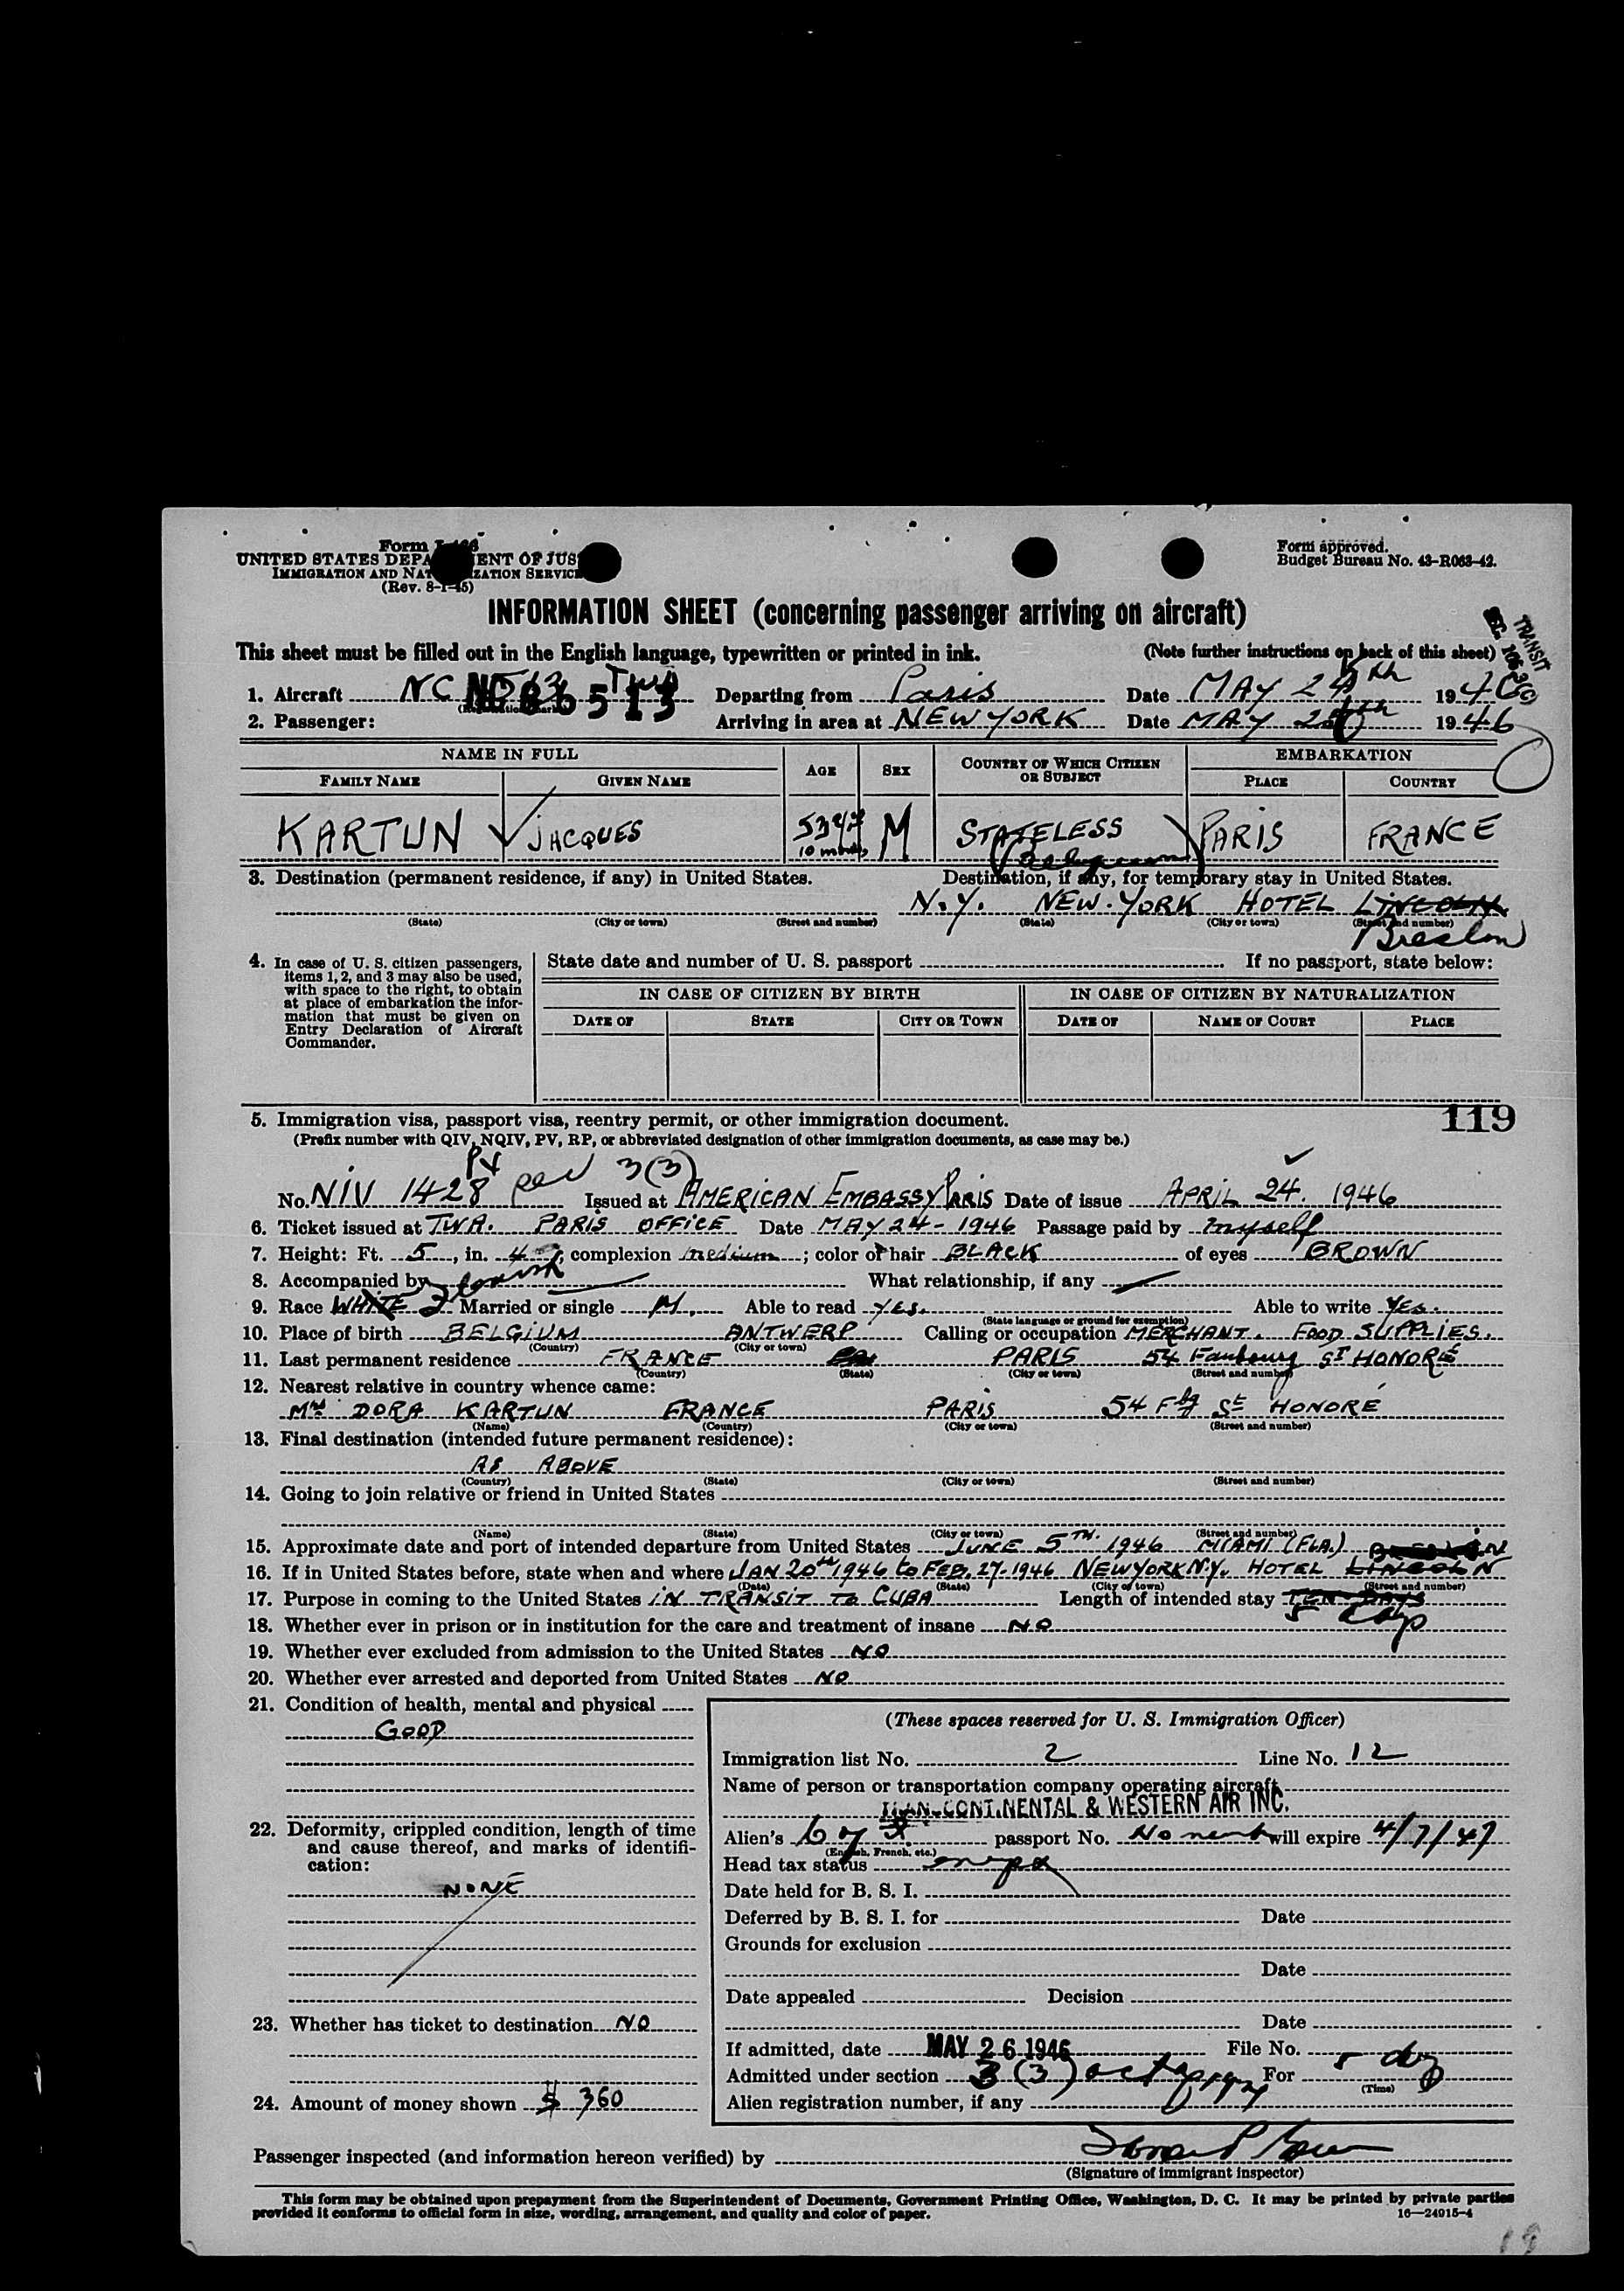 Form
UNITED STATES DEPA ENT OF JUS
IMMIGRATION AND NAT IZATION SERVICE
(Rev. 8-1-45)
Form approved.
Budget Bureau No. 43-R063-42.
INFORMATION SHEET (concerning passenger arriving on aircraft)
This sheet must be filled out in the English language, typewritten or printed in ink. (Note further instructions on back of this sheet)
TRANSIT
1. Aircraft NC 86513 TWA Departing from Paris Date MAY 24th 1946
2. Passenger: Arriving in area at NEW YORK Date MAY 1946
NAME IN FULL AGE SEX COUNTRY OF WHICH CITIZEN OR SUBJECT EMBARKATION
FAMILY NAME GIVEN NAME PLACE COUNTRY
KARTUN JACQUES 53 10 months M STATELESS PARIS FRANCE
3. Destination (permanent residence, if any) in United States. Destination, if any, for temporary stay in United States.
N.Y. NEW-YORK HOTEL LINCOLN
(State) (City or town) (Street and number) (State) (City or town) (Street and number)
Breslin
4. In case of U. S. citizen passengers, items 1, 2, and 3 may also be used, with space to the right, to obtain at place of embarkation the information that must be given on Entry Declaration of Aircraft Commander.
State date and number of U. S. passport If no passport, state below:
IN CASE OF CITIZEN BY BIRTH IN CASE OF CITIZEN BY NATURALIZATION
DATE OF STATE CITY OR TOWN DATE OF NAME OF COURT PLACE
119
5. Immigration visa, passport visa, reentry permit, or other immigration document.
(Prefix number with QIV, NQIV, PV, RP, or abbreviated designation of other immigration documents, as case may be.)
PV 3(3)
No. NIV 1428 Issued at AMERICAN EMBASSY PARIS Date of issue APRIL 24. 1946
6. Ticket issued at TWA. PARIS OFFICE Date MAY 24-1946 Passage paid by myself
7. Height: Ft. 5, in. 4; complexion medium; color of hair BLACK of eyes BROWN
8. Accompanied by What relationship, if any
9. Race WHITE Married or single M. Able to read YES. Able to write YES.
(State language or ground for exemption)
10. Place of birth BELGIUM ANTWERP Calling or occupation MERCHANT. FOOD SUPPLIES.
(Country) (City or town)
11. Last permanent residence FRANCE PARIS 54 Faubourg ST HONORÉ
(Country) (State) (City or town) (Street and number)
12. Nearest relative in country whence came:
Mrs DORA KARTUN FRANCE PARIS 54 Fbg St HONORÉ
(Name) (Country) (City or town) (Street and number)
13. Final destination (intended future permanent residence):
AS ABOVE
(Country) (State) (City or town) (Street and number)
14. Going to join relative or friend in United States
(Name) (State) (City or town) (Street and number)
15. Approximate date and port of intended departure from United States JUNE 5TH. 1946 MIAMI (FLA.)
16. If in United States before, state when and where JAN 20th 1946 to FEB. 27-1946 NEWYORK N.Y. HOTEL LINCOLN
(Date) (State) (City or town) (Street and number)
17. Purpose in coming to the United States IN TRANSIT TO CUBA Length of intended stay TEN DAYS
5 days
18. Whether ever in prison or in institution for the care and treatment of insane NO
19. Whether ever excluded from admission to the United States NO
20. Whether ever arrested and deported from United States NO
21. Condition of health, mental and physical
GOOD
22. Deformity, crippled condition, length of time and cause thereof, and marks of identification:
NONE
23. Whether has ticket to destination NO
24. Amount of money shown $ 360
(These spaces reserved for U. S. Immigration Officer)
Immigration list No. 2 Line No. 12
Name of person or transportation company operating aircraft
CONTINENTAL & WESTERN AIR INC.
Alien's passport No. will expire 4/7/47
(English, French, etc.)
Head tax status
Date held for B. S. I.
Deferred by B. S. I. for Date
Grounds for exclusion
Date
Date appealed Decision
Date
If admitted, date MAY 26 1946 File No.
Admitted under section 3(3) For 5 dys
(Time)
Alien registration number, if any
Passenger inspected (and information hereon verified) by
(Signature of immigrant inspector)
This form may be obtained upon prepayment from the Superintendent of Documents, Government Printing Office, Washington, D. C. It may be printed by private parties
provided it conforms to official form in size, wording, arrangement, and quality and color of paper. 16—24915-4